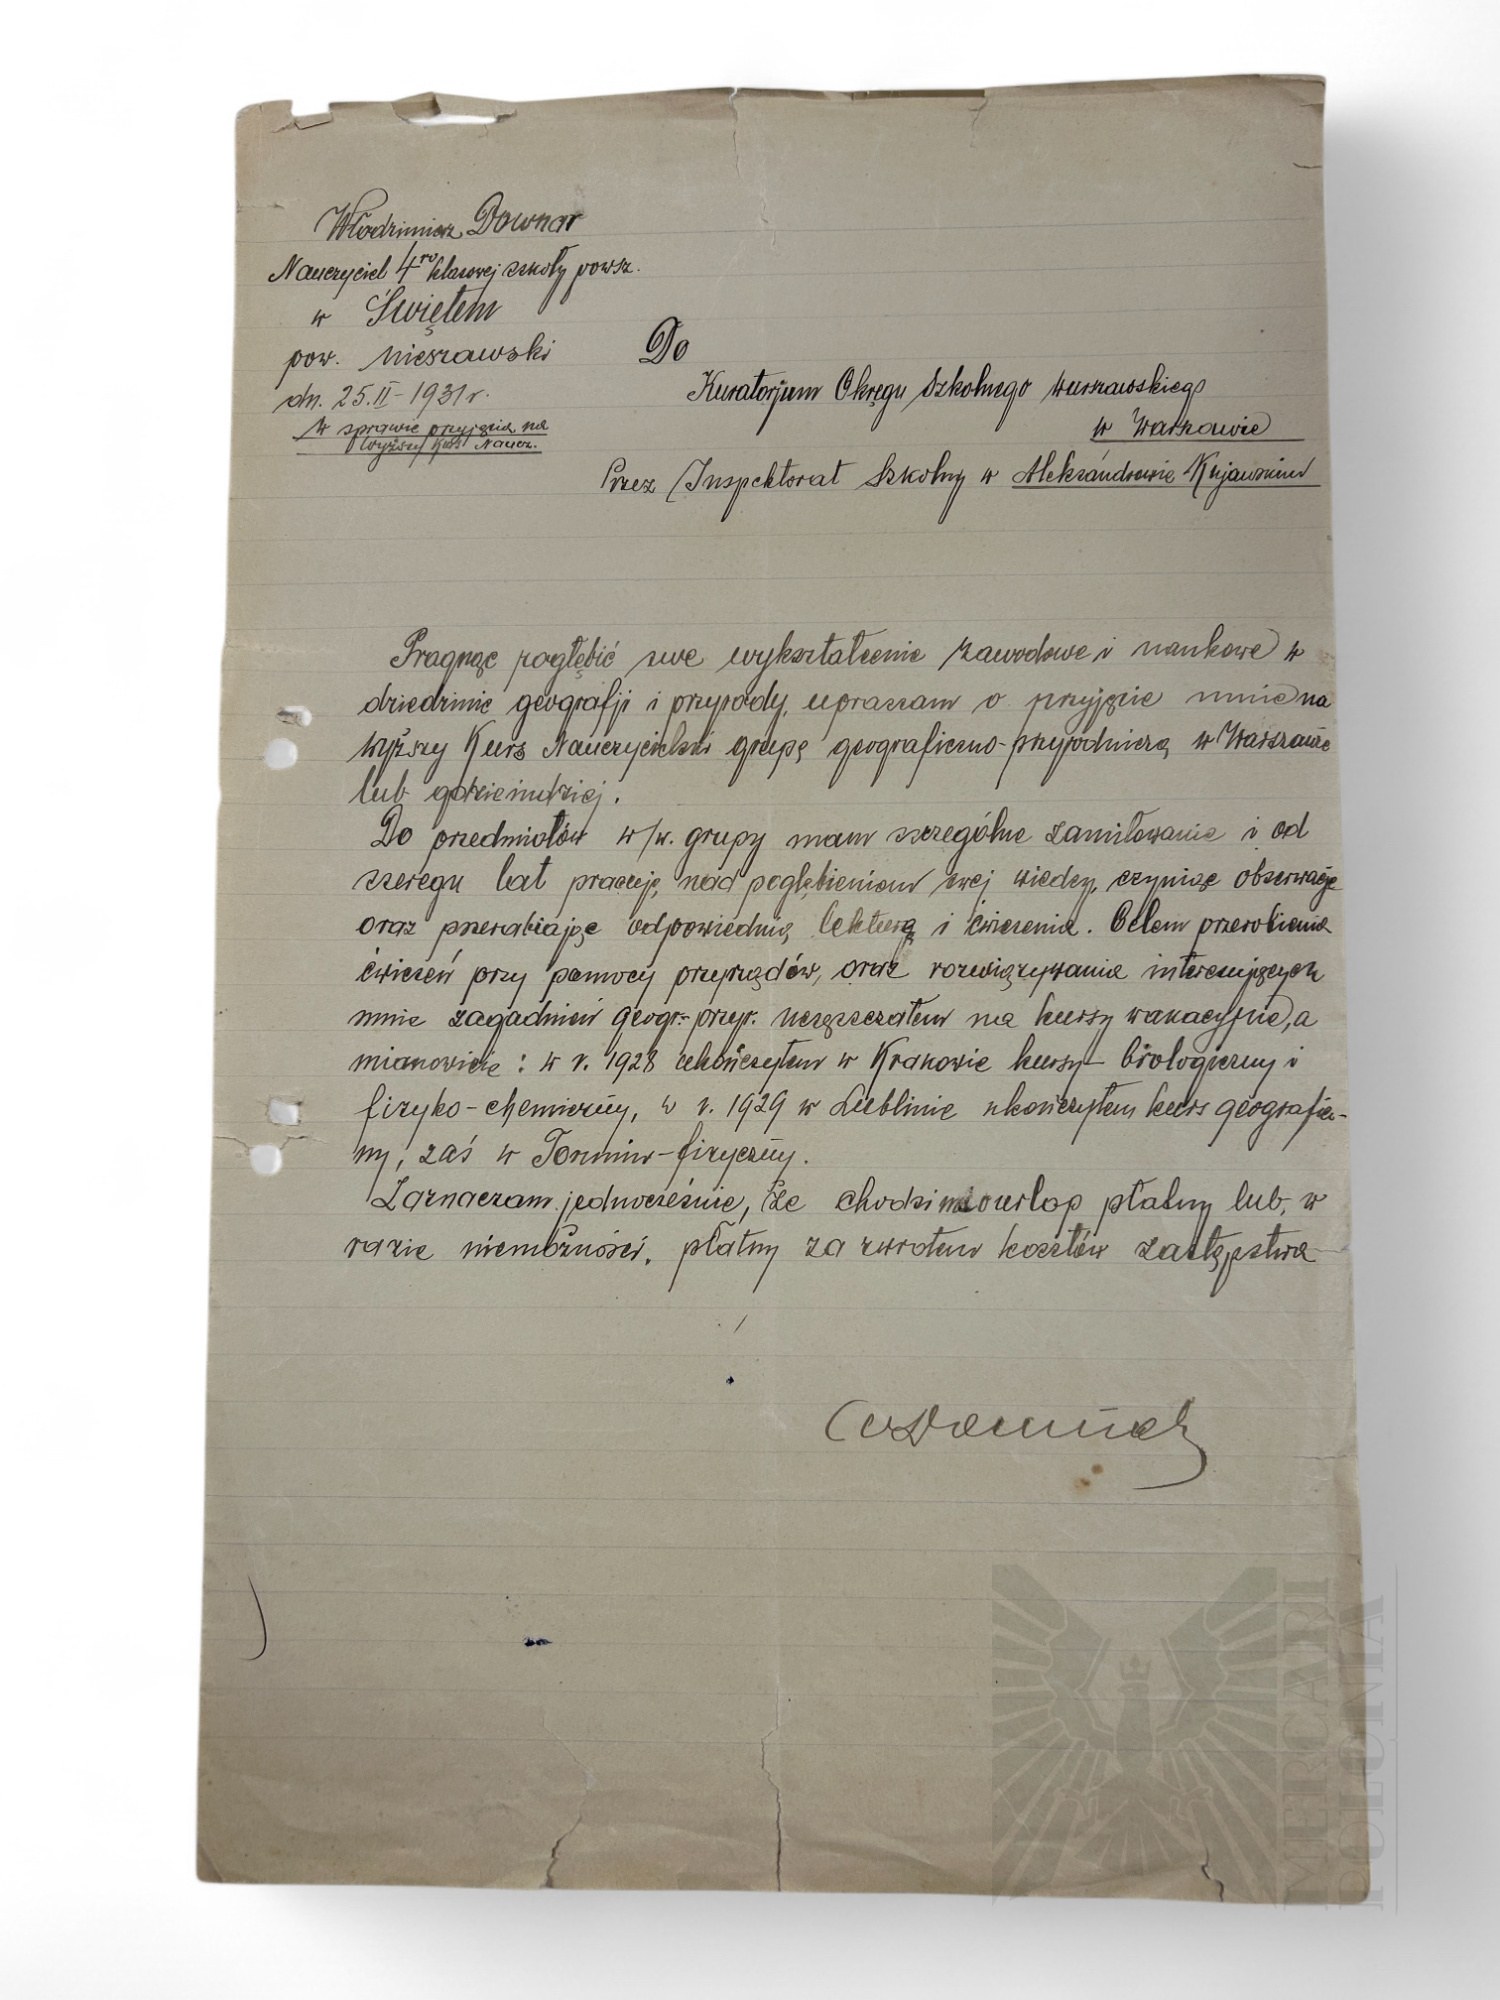 Włodzimierz Downar
Nauczyciel 4ro klasowej szkoły powsz.
w Świętem
pow. nieszawski
dn. 25.II-1931 r.
W sprawie przyjęcia na
Wyższy Kurs Naucz.
Do
Kuratorjum Okręgu Szkolnego warszawskiego
w Warszawie
Przez Inspektorat Szkolny w Aleksandrowie Kujawskim
Pragnąc pogłębić swe wykształcenie zawodowe i naukowe w
dziedzinie geografji i przyrody, upraszam o przyjęcie mnie na
wyższy Kurs Nauczycielski grupę geograficzno-przyrodniczą w Warszawie
lub gdzieindziej.
Do przedmiotów w/w. grupy mam szczególne zamiłowanie i od
szeregu lat pracuję nad pogłębieniem swej wiedzy, czyniąc obserwacje
oraz przerabiając odpowiednią lekturę i ćwiczenia. Celem przerobienia
ćwiczeń przy pomocy przyrządów, oraz rozwiązywania interesujących
mnie zagadnień geogr.-przyr. uczęszczałem na kursy wakacyjne, a
mianowicie: w r. 1928 ukończyłem w Krakowie kursy - biologiczny i
fizyko-chemiczny, w r. 1929 w Lublinie ukończyłem kurs geograficz-
ny, zaś w Toruniu - fizyczny.
Zaznaczam jednocześnie, że chodzi mi o urlop płatny lub, w
razie niemożności, płatny za zwrotem kosztów zastępstwa
MERCARI
POLONIA